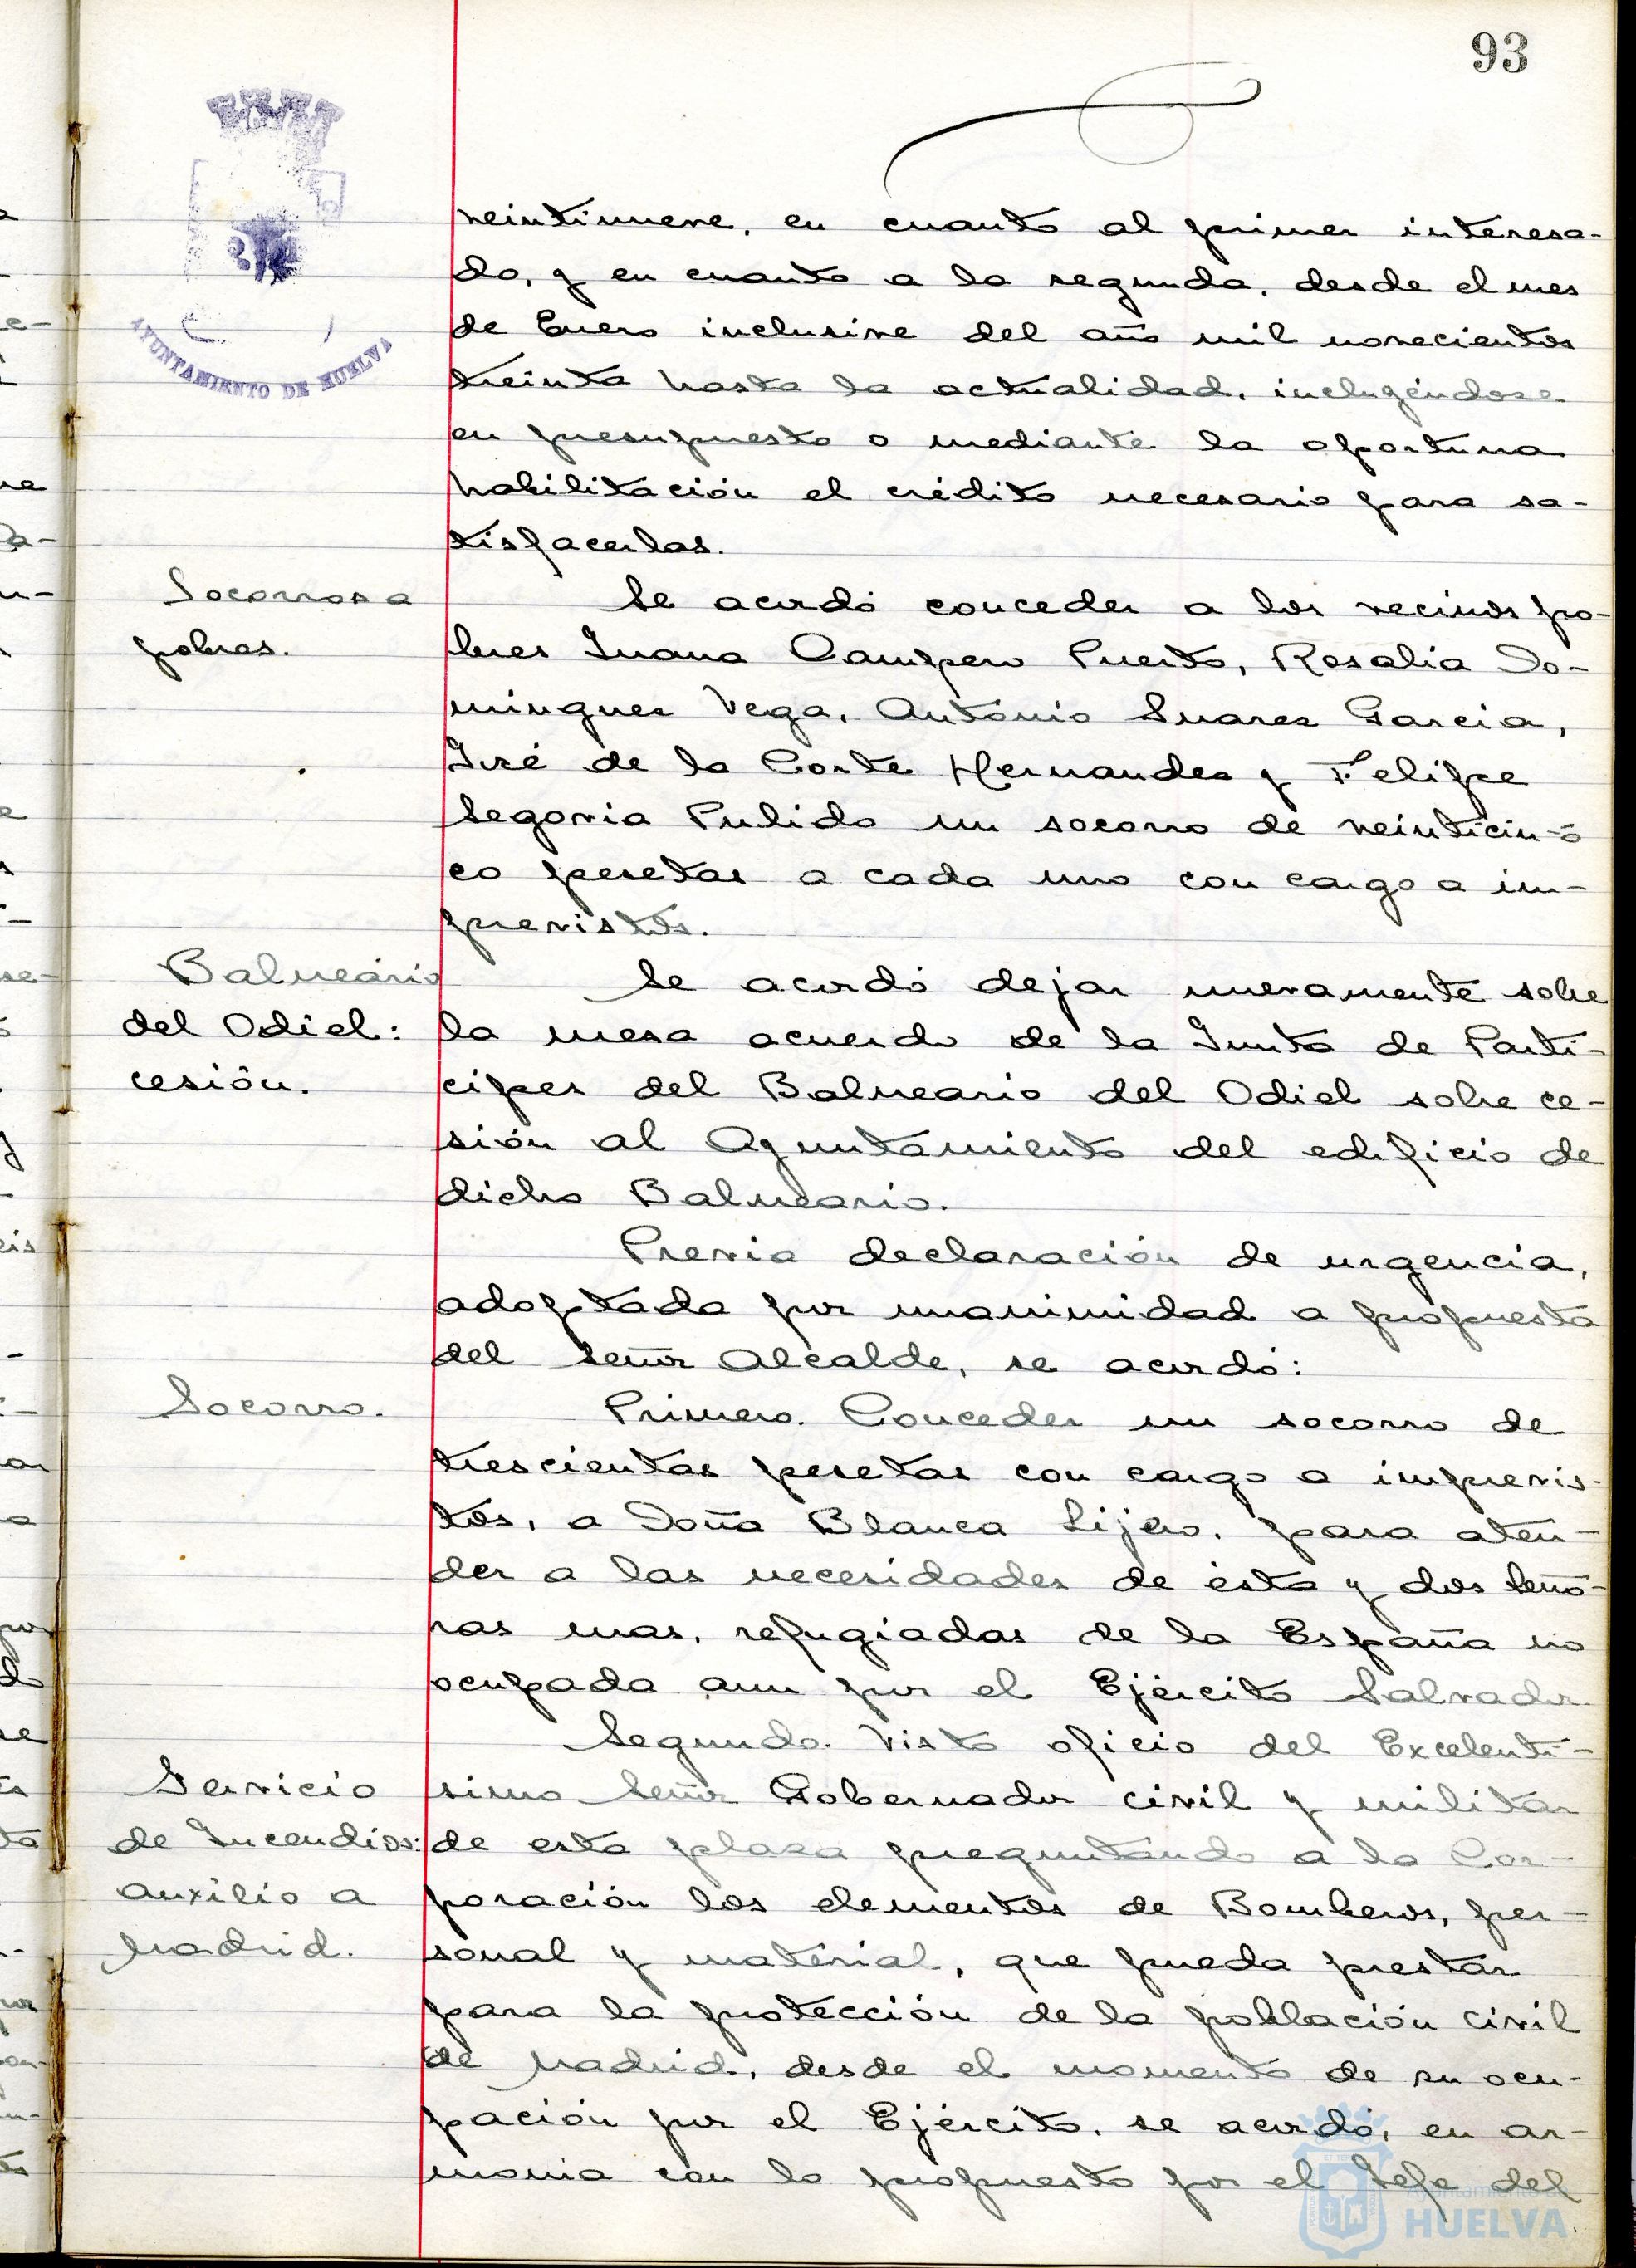 93
AYUNTAMIENTO DE HUELVA
veintinueve, en cuanto al primer interesa-
do, y en cuanto a la segunda, desde el mes
de Enero inclusive del año mil novecientos
treinta hasta la actualidad, incluyéndose
en presupuesto o mediante la oportuna
habilitación el crédito necesario para sa-
tisfacerlas.
Socorros a
pobres.
Se acordó conceder a los vecinos po-
bres Juana Campero Puerto, Rosalia Do-
minguez Vega, Antonio Suarez Garcia,
José de la Corte Hernandez y Felipe
Segovia Pulido un socorro de veinticin-
co pesetas a cada uno con cargo a im-
previstos.
Balneario
del Odiel:
cesión.
Se acordó dejar nuevamente sobre
la mesa acuerdo de la Junta de Parti-
cipes del Balneario del Odiel sobre ce-
sión al Ayuntamiento del edificio de
dicho Balneario.
Previa declaración de urgencia,
adoptada por unanimidad a propuesta
del Señor Alcalde, se acordó:
Socorro.
Primero. Conceder un socorro de
trescientas pesetas con cargo a imprevis-
tos, a Doña Blanca Lijero, para aten-
der a las necesidades de ésta y dos Seño-
ras mas, refugiadas de la España no
ocupada aun por el Ejército Salvador.
Segundo. Visto oficio del Excelentí-
Servicio
de Incendios:
auxilio a
Madrid.
simo Señor Gobernador civil y militar
de esta plaza preguntando a la Cor-
poración los elementos de Bomberos, per-
sonal y material, que pueda prestar
para la protección de la población civil
de Madrid, desde el momento de su ocu-
pación por el Ejército, se acordó, en ar-
monia con lo propuesto por el Jefe del
Ayuntamiento de
HUELVA